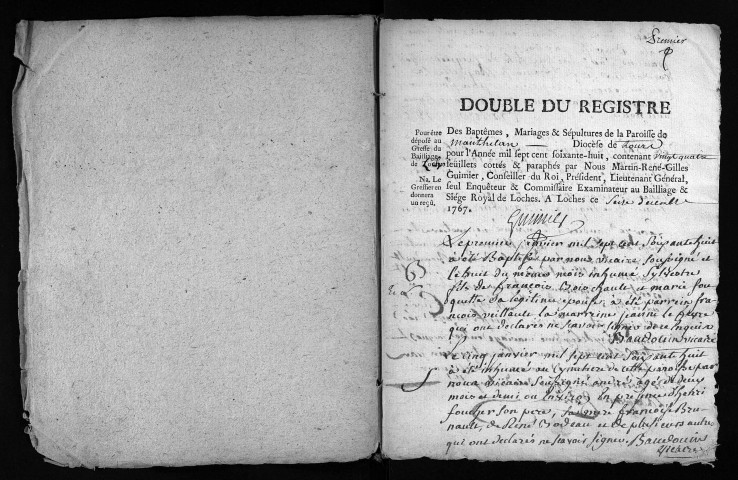 Premier
DOUBLE DU REGISTRE
Pour être
déposé au
Greffe du
Bailliage
de Loches
Na. Le
Greffier en
donnera
un reçu.
Des Baptêmes, Mariages & Sépultures de la Paroisse de
Manthelan Diocèse de Tours
pour l'Année mil sept cent soixante-huit, contenant vingt quatre
feuillets cottés & paraphés par Nous Martin-René-Gilles
Guimier, Conseiller du Roi, Président, Lieutenant Général,
seul Enquêteur & Commissaire Examinateur au Bailliage &
Siége Royal de Loches. A Loches ce
1767.
Guimier
Le premier janvier mil sept cent soixante huit
a été Baptisé par nous vicaire soussigné et
le huit du même mois inhumé Sylvestre
fils de françois et marie
sa légitime épouse, a été parrein fran-
çois la marreine jeanne
qui ont déclarés ne scavoir signer de ce enquis
Baudouin vicaire
Le cinq janvier mil sept cent soixante huit
a été inhumé au cymetiere de cette paroisse par
nous vicaire soussigné andré âgé de deux
mois et demi ou environ en présence
son père, françois Bru-
nault, de René et de plusieurs autres
qui ont déclarés ne scavoir signer. Baudouin
vicaire